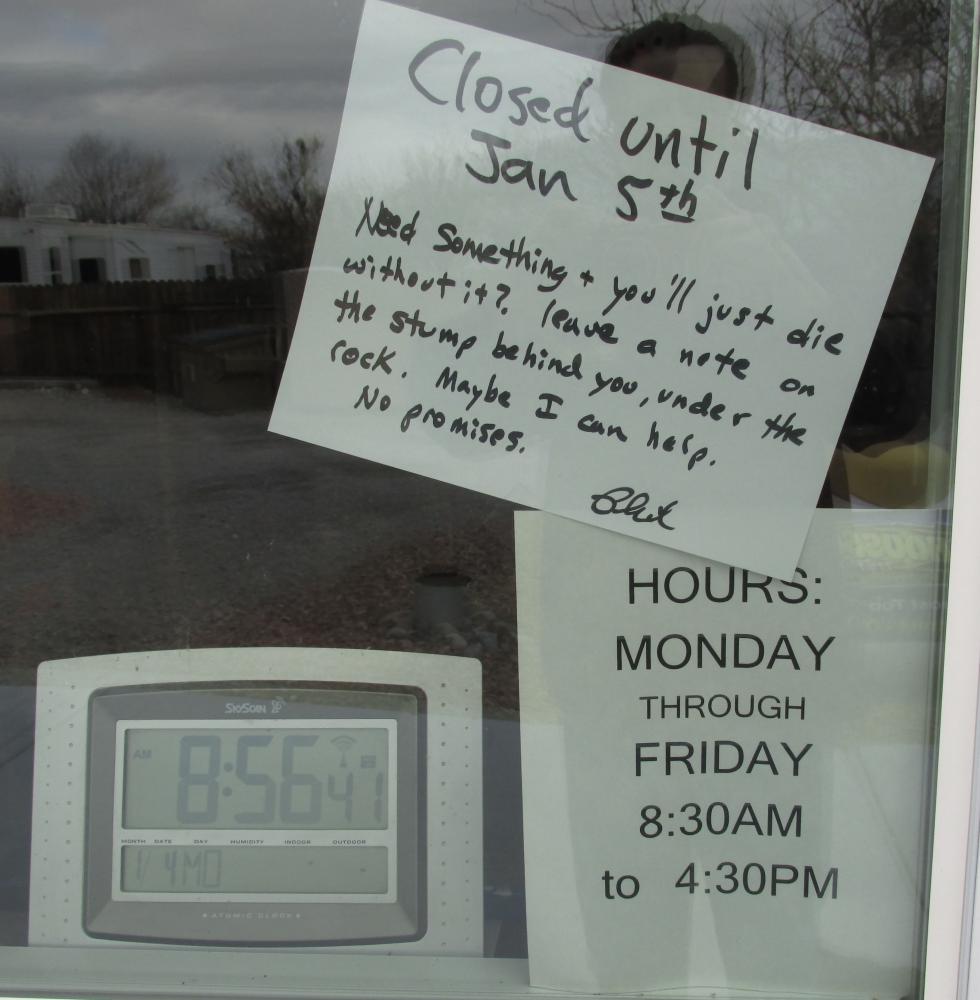 Closed until
Jan 5th
Need Something + you'll just die
without it? leave a note on
the stump behind you, under the
rock. Maybe I can help.
No promises.
HOURS:
MONDAY
THROUGH
FRIDAY
8:30AM
to 4:30PM
SkyScan
AM 8:56 41
MONTH DATE DAY HUMIDITY INDOOR OUTDOOR
1/ 4 MO
ATOMIC CLOCK